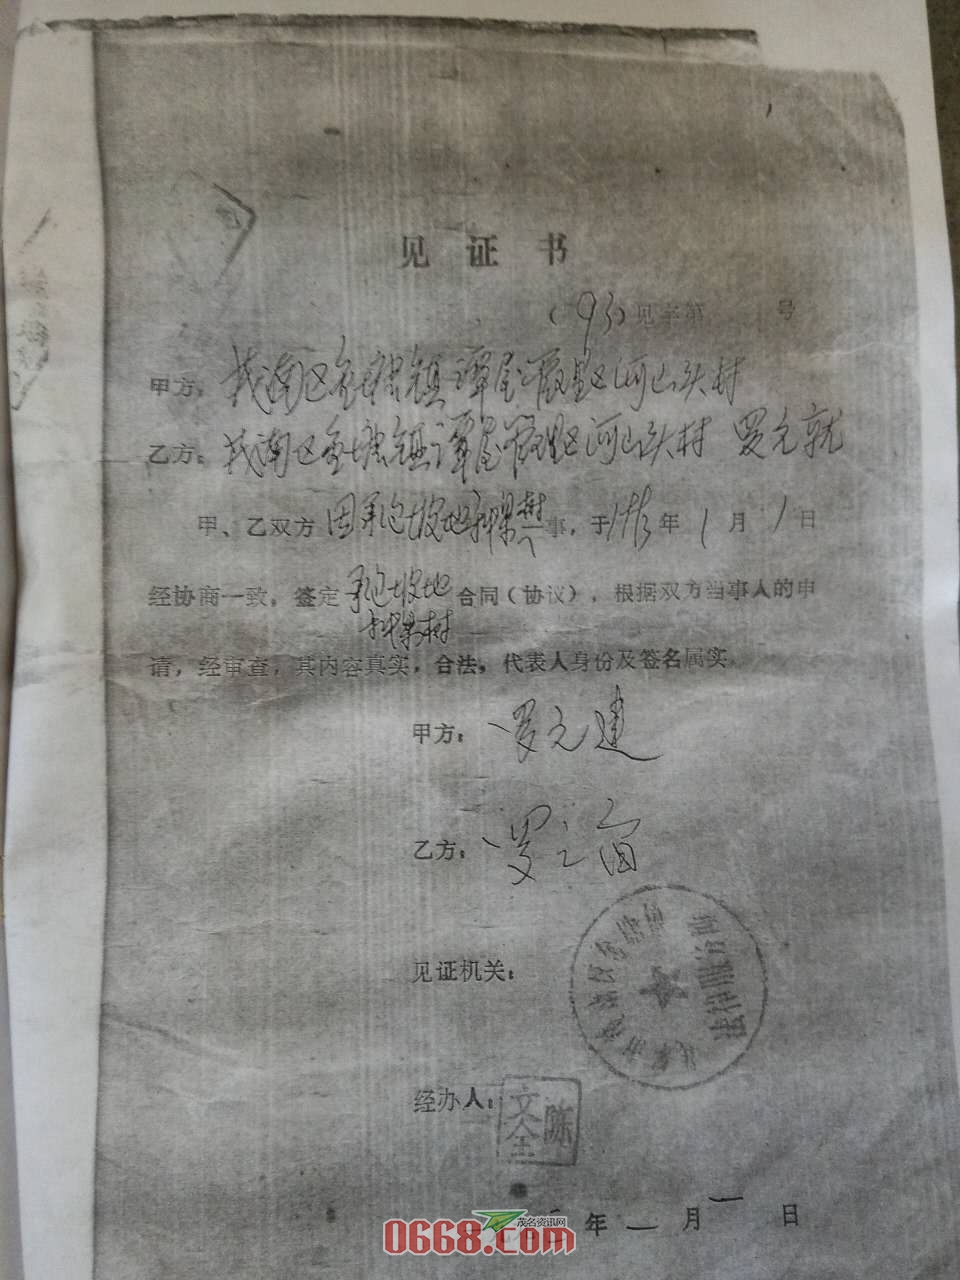 见证书
（93）见字第 号
甲方：茂南区金塘镇谭屋管理区河山头村
乙方：茂南区金塘镇谭屋管理区河山头村 罗元就
甲、乙双方因承包坡地种果树一事，于 年1月1日
经协商一致，签定承包坡地种果树合同（协议），根据双方当事人的申
请，经审查，其内容真实，合法，代表人身份及签名属实
甲方：罗元建
乙方：罗
见证机关：
茂名市茂南区金塘镇法律服务所
经办人：陈文全
年一月一日
茂名资讯网
0668.com